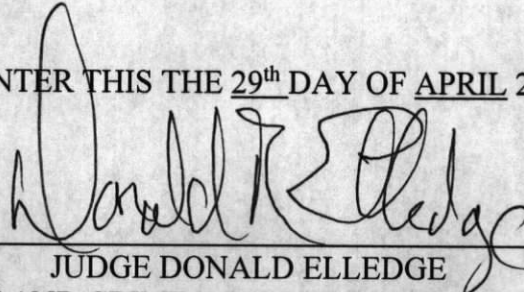 NTER THIS THE 29th DAY OF APRIL 2
Donald R Elledge
JUDGE DONALD ELLEDGE